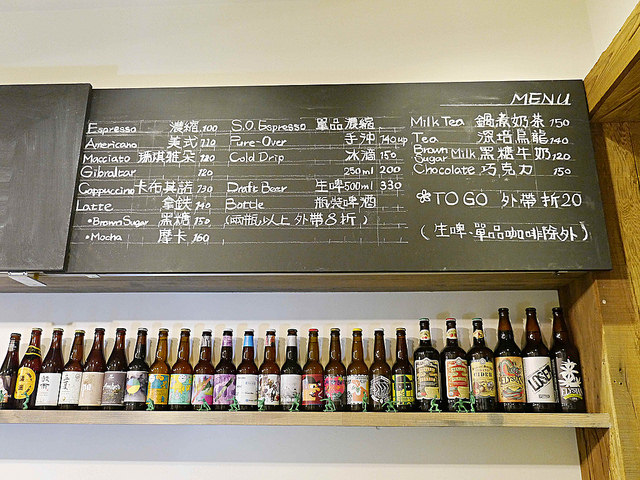 MENU
Espresso 濃縮 100
Americano 美式 120
Macciato 瑪琪雅朵 120
Gibraltar 120
Cappuccino 卡布其諾 130
Latte 拿鐵 140
•Brown Sugar 黑糖 150
•Mocha 摩卡 160
S.O. Espresso 單品濃縮
Pure-Over 手沖 140up
Cold Drip 冰滴 150
250ml 200
Draft Beer 生啤500ml 330
Bottle 瓶裝啤酒
(兩瓶以上外帶8折)
Milk Tea 鍋煮奶茶 150
Tea 深培烏龍 140
Brown Sugar Milk 黑糖牛奶 120
Chocolate 巧克力 150
TO GO 外帶折20
(生啤、單品咖啡除外)